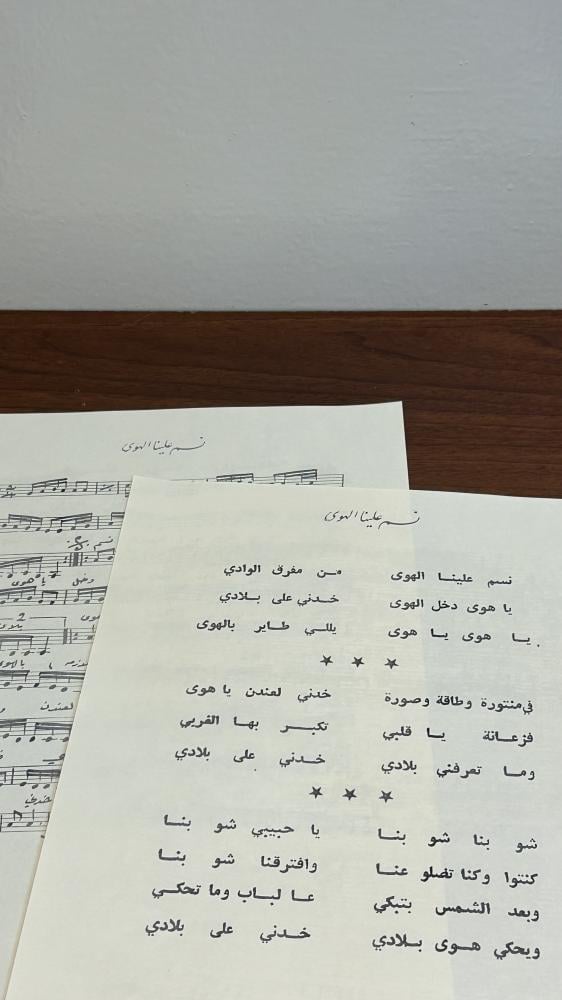 نسم علينا الهوى
نسم
يا هوى
دخل
بلادي
بالهوى
لعندن
خدني
نسم علينا الهوى
نسم علينا الهوى من مفرق الوادي
يا هوى دخل الهوى خدني على بلادي
يا هوى يا هوى يللي طاير بالهوى
في منتورة وطاقة وصورة خدني لعندن يا هوى
فزعانة يا قلبي تكبر بها الغربي
وما تعرفني بلادي خدني على بلادي
شو بنا شو بنا يا حبيبي شو بنا
كنتوا وكنا تضلو عنا وافترقنا شو بنا
وبعد الشمس بتبكي عا لباب وما تحكي
ويحكي هوى بلادي خدني على بلادي